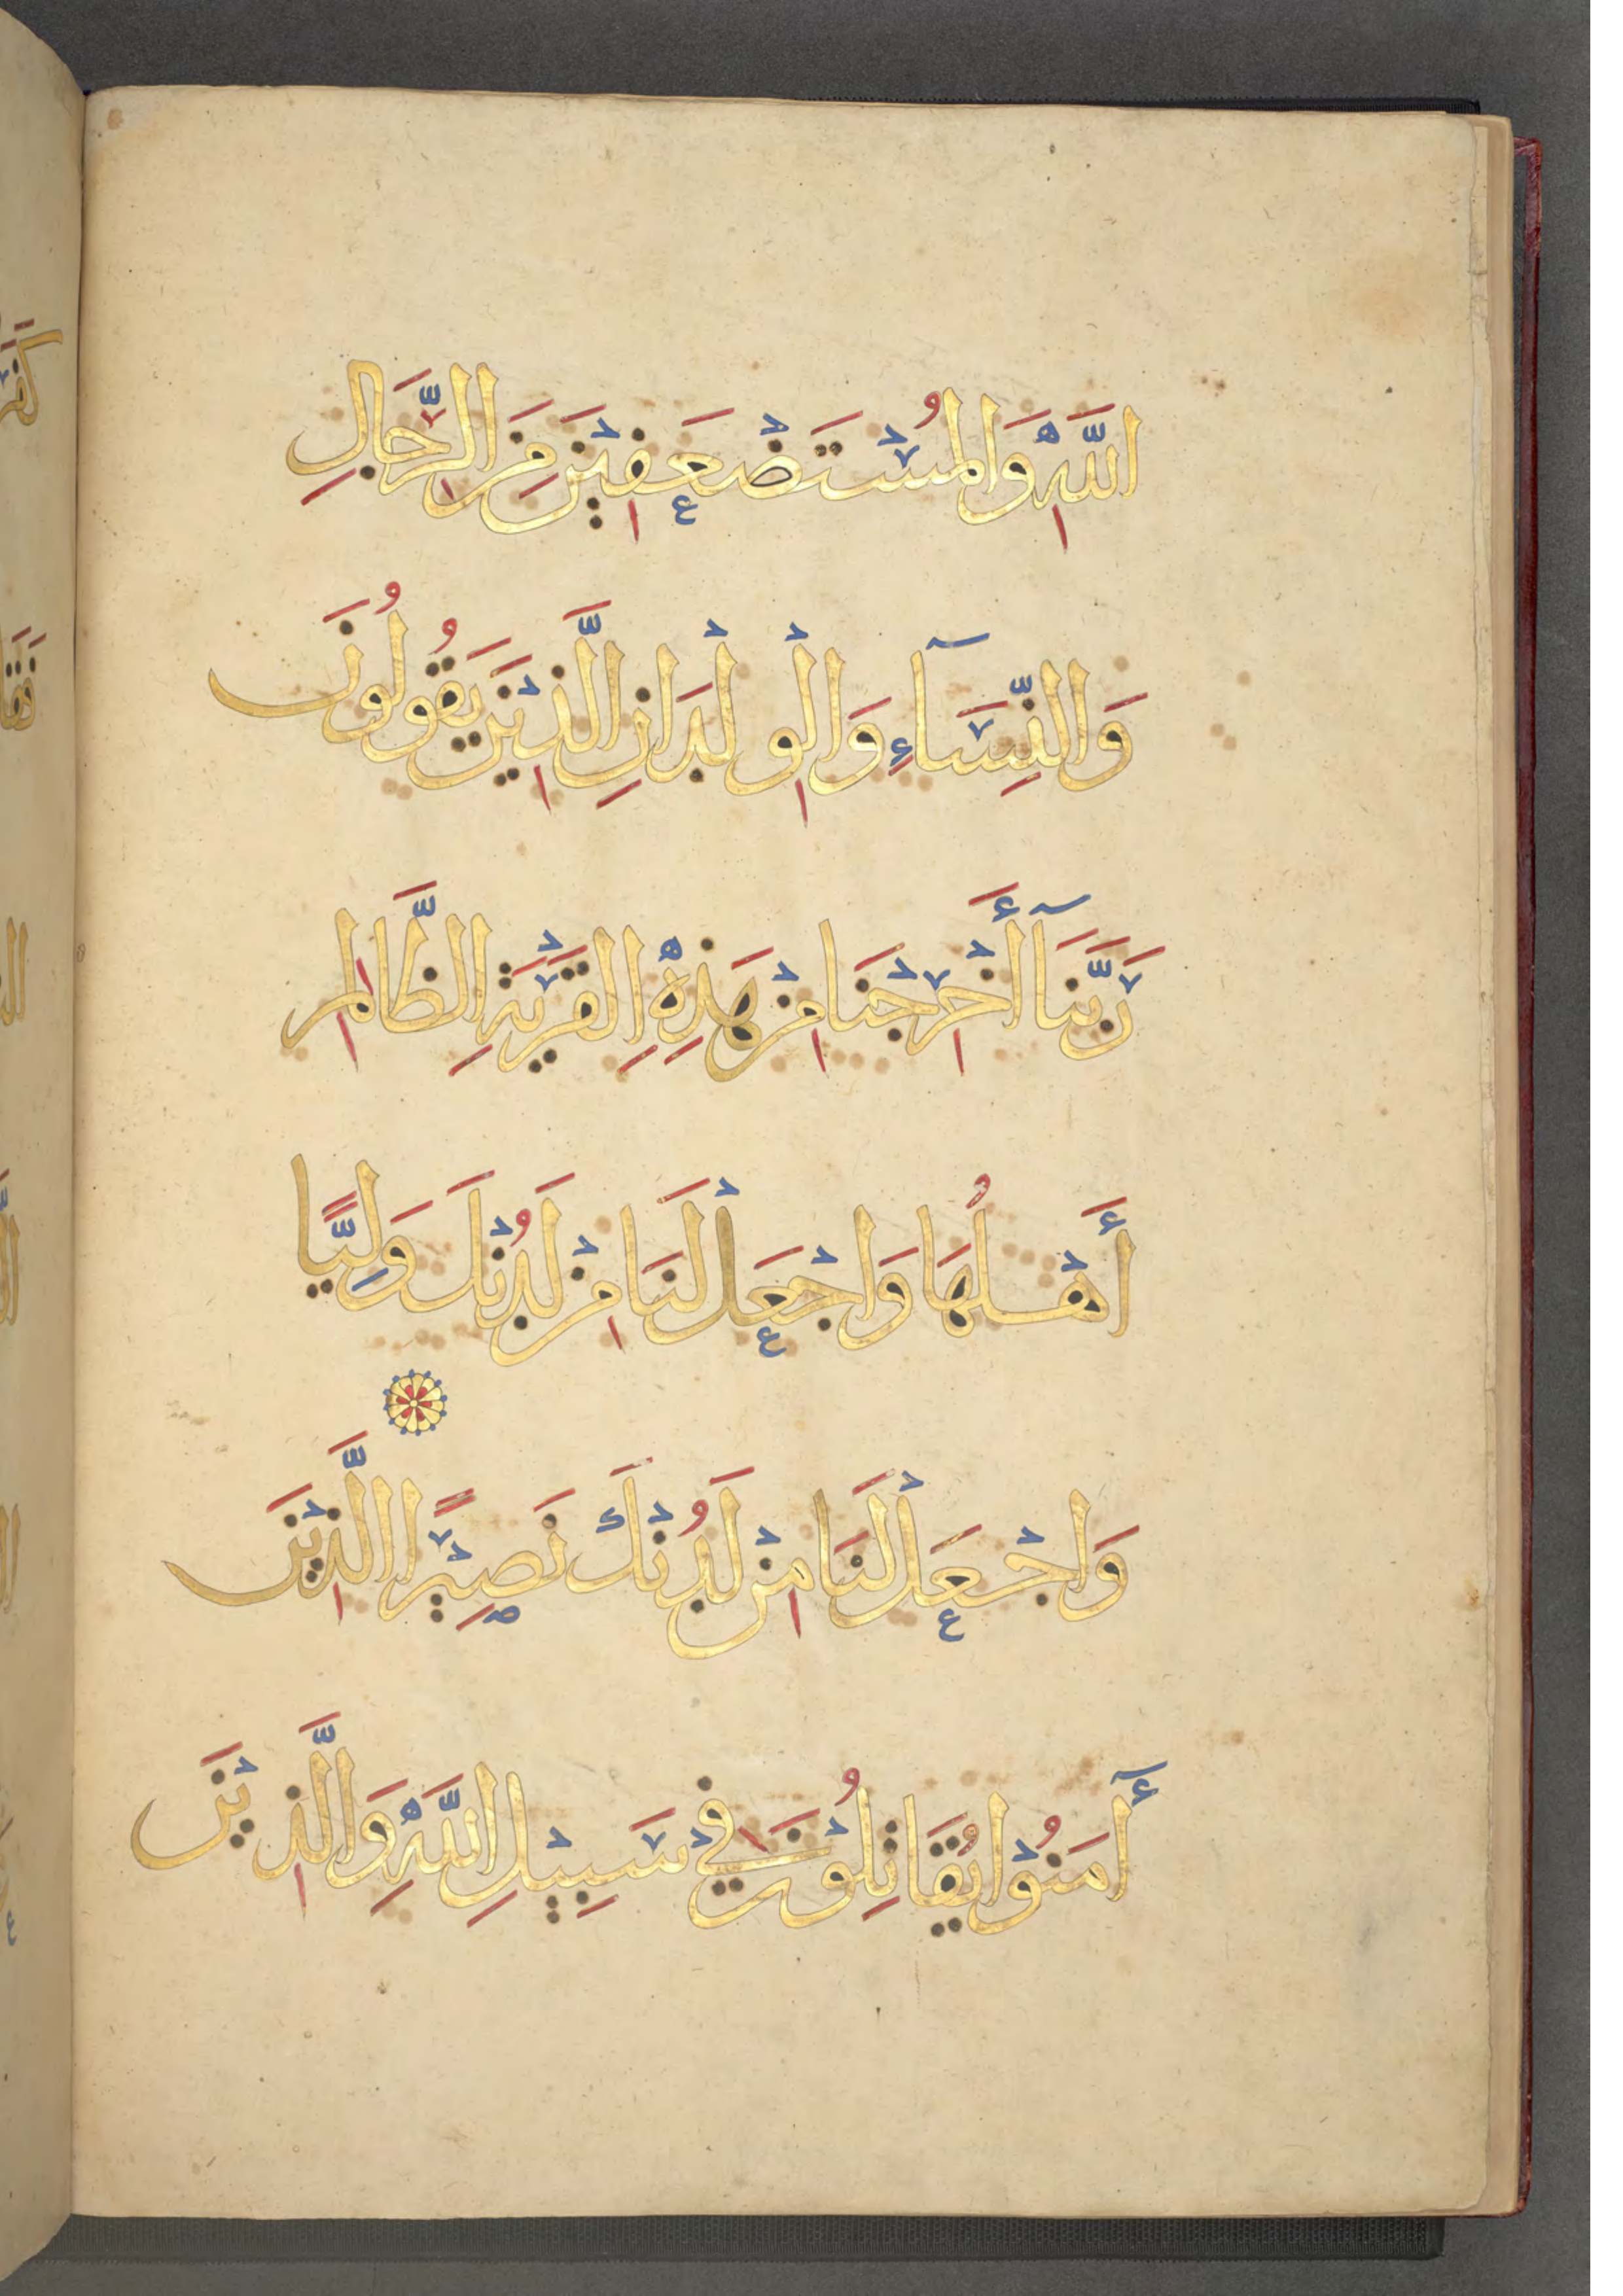 اللَّهِ وَالْمُسْتَضْعَفِيْنَ مِنَ الرِّجَالِ
وَالنِّسَآءِ وَالْوِلْدَانِ الَّذِيْنَ يَقُولُونَ
رَبَّنَآ أَخْرِجْنَا مِنْ هَذِهِ الْقَرْيَةِ الظَّالِمِ
أَهْلُهَا وَاجْعَلْ لَنَا مِنْ لَدُنْكَ وَلِيًّا
وَاجْعَلْ لَنَا مِنْ لَدُنْكَ نَصِيْرًا الَّذِيْنَ
أٓمَنُوْا يُقَاتِلُوْنَ فِيْ سَبِيْلِ اللَّهِ وَالَّذِيْنَ